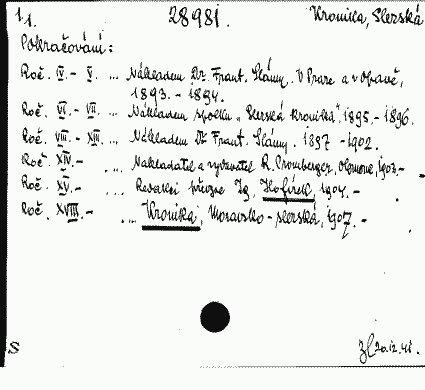 11. 28981. Kronika, Slezská
Pokračování:
Roč. IV. - V. ... Nákladem Dr. Frant. Slámy. V Praze a v Opavě,
1893. - 1894.
Roč. VI. - VII ... Nákladem spolku „Slezská kronika", 1895. - 1896.
Roč. VIII. - XIII. ... Nákladem Dr Frant. Slámy. 1897 - 1902.
Roč. XIV. - ... Nakladatel a vydavatel R. Promberger, Olomouc, 1903. -
Roč. XV. - ... Redakcí Ig. Hofírek, 1904. -
Roč. XVIII. - ... Kronika, Moravsko-slezská, 1907. -
S 20.12.41.